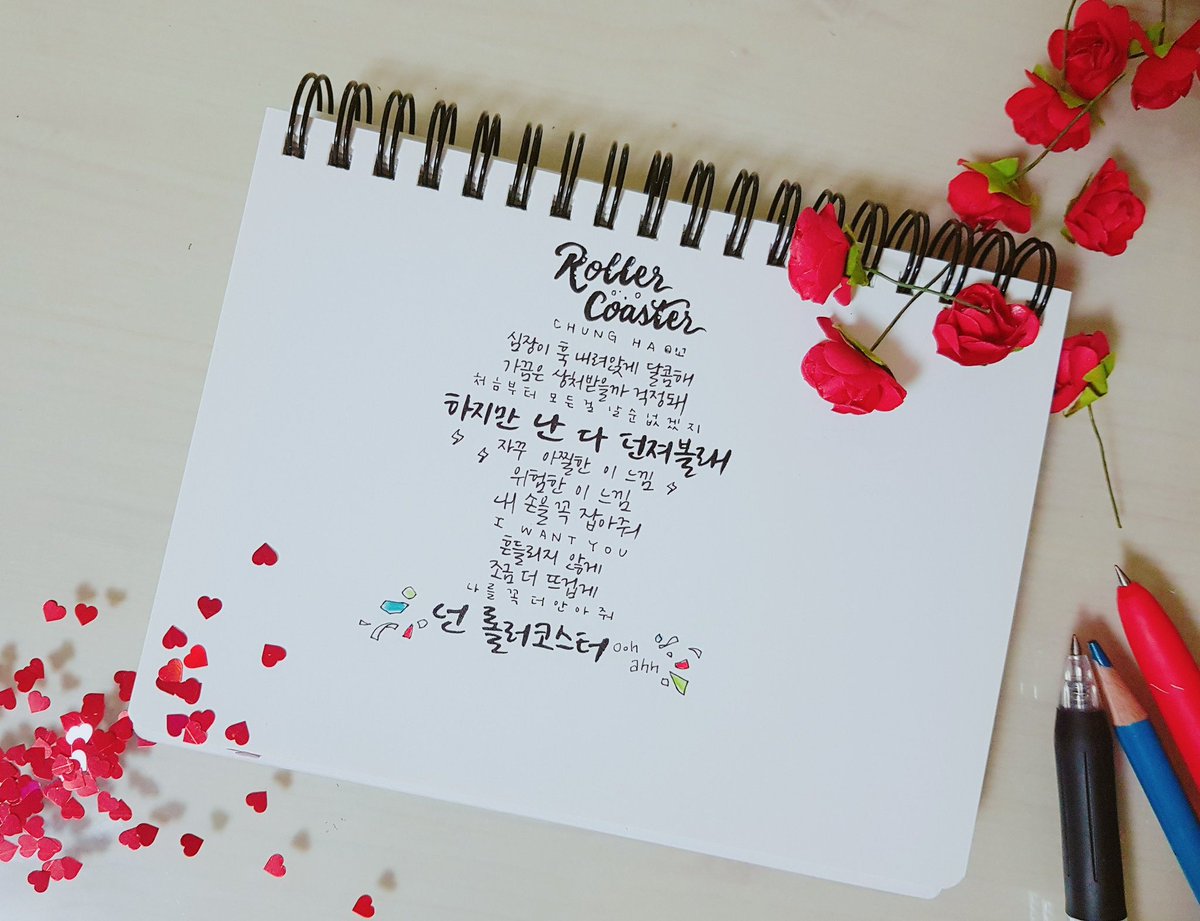 Roller
Coaster
CHUNG HA
심장이 훅 내려앉게 달콤해
가끔은 상처받을까 걱정돼
처음부터 모든걸 알순없겠지
하지만 난 다 던져볼래
자꾸 아찔한 이 느낌
위험한 이 느낌
내 손을 꼭 잡아줘
I WANT YOU
흔들리지 않게
조금 더 뜨겁게
나를 꼭 더 안아줘
넌 롤러코스터 ooh
ahh